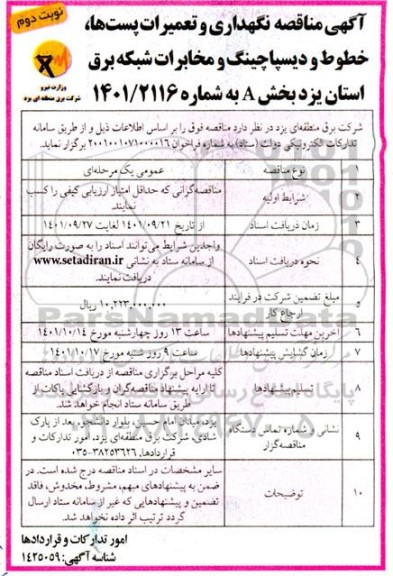 نوبت دوم
آگهی مناقصه نگهداری و تعمیرات پست‌ها،
خطوط و دیسپاچینگ و مخابرات شبکه برق
استان یزد بخش A به شماره ۱۴۰۱/۲۱۱۶
وزارت نیرو
شرکت برق منطقه ای یزد
شرکت برق منطقه‌ای یزد در نظر دارد مناقصه فوق را بر اساس اطلاعات ذیل و از طریق سامانه
تدارکات الکترونیکی دولت (ستاد) به شماره فراخوان ۲۰۰۱۰۰۱۰۷۱۰۰۰۰۱۶ برگزار نماید.
۱ نوع مناقصه عمومی یک مرحله‌ای
۲ شرایط اولیه مناقصه‌گرانی که حداقل امتیاز ارزیابی کیفی را کسب
نمایند.
۳ زمان دریافت اسناد از تاریخ ۱۴۰۱/۰۹/۲۱ لغایت ۱۴۰۱/۰۹/۲۷
۴ نحوه دریافت اسناد واجدین شرایط می‌توانند اسناد را به صورت رایگان
از سامانه ستاد به نشانی www.setadiran.ir
دریافت نمایند.
۵ مبلغ تضمین شرکت در فرایند
ارجاع کار ۱۰,۲۲۳,۰۰۰,۰۰۰ ریال
۶ آخرین مهلت تسلیم پیشنهادها ساعت ۱۳ روز چهارشنبه مورخ ۱۴۰۱/۱۰/۱۴
۷ زمان گشایش پیشنهادها ساعت ۹ روز شنبه مورخ ۱۴۰۱/۱۰/۱۷
۸ تسلیم پیشنهادها کلیه مراحل برگزاری مناقصه از دریافت اسناد مناقصه
تا ارایه پیشنهاد مناقصه‌گران و بازگشایی پاکات از
طریق سامانه ستاد انجام خواهد شد.
۹ نشانی و شماره تماس دستگاه
مناقصه‌گزار یزد، میدان امام حسین، بلوار دانشجو، بعد از پارک
شادی، شرکت برق منطقه‌ای یزد، امور تدارکات و
قراردادها، ۳۸۲۵۳۶۲۶-۰۳۵
۱۰ توضیحات سایر مشخصات در اسناد مناقصه درج شده است. در
ضمن به پیشنهادهای مبهم، مشروط، مخدوش، فاقد
تضمین و پیشنهادهایی که غیر از سامانه ستاد ارسال
گردد ترتیب اثر داده نخواهد شد.
امور تدارکات و قراردادها
شناسه آگهی: ۱۴۲۵۰۵۹